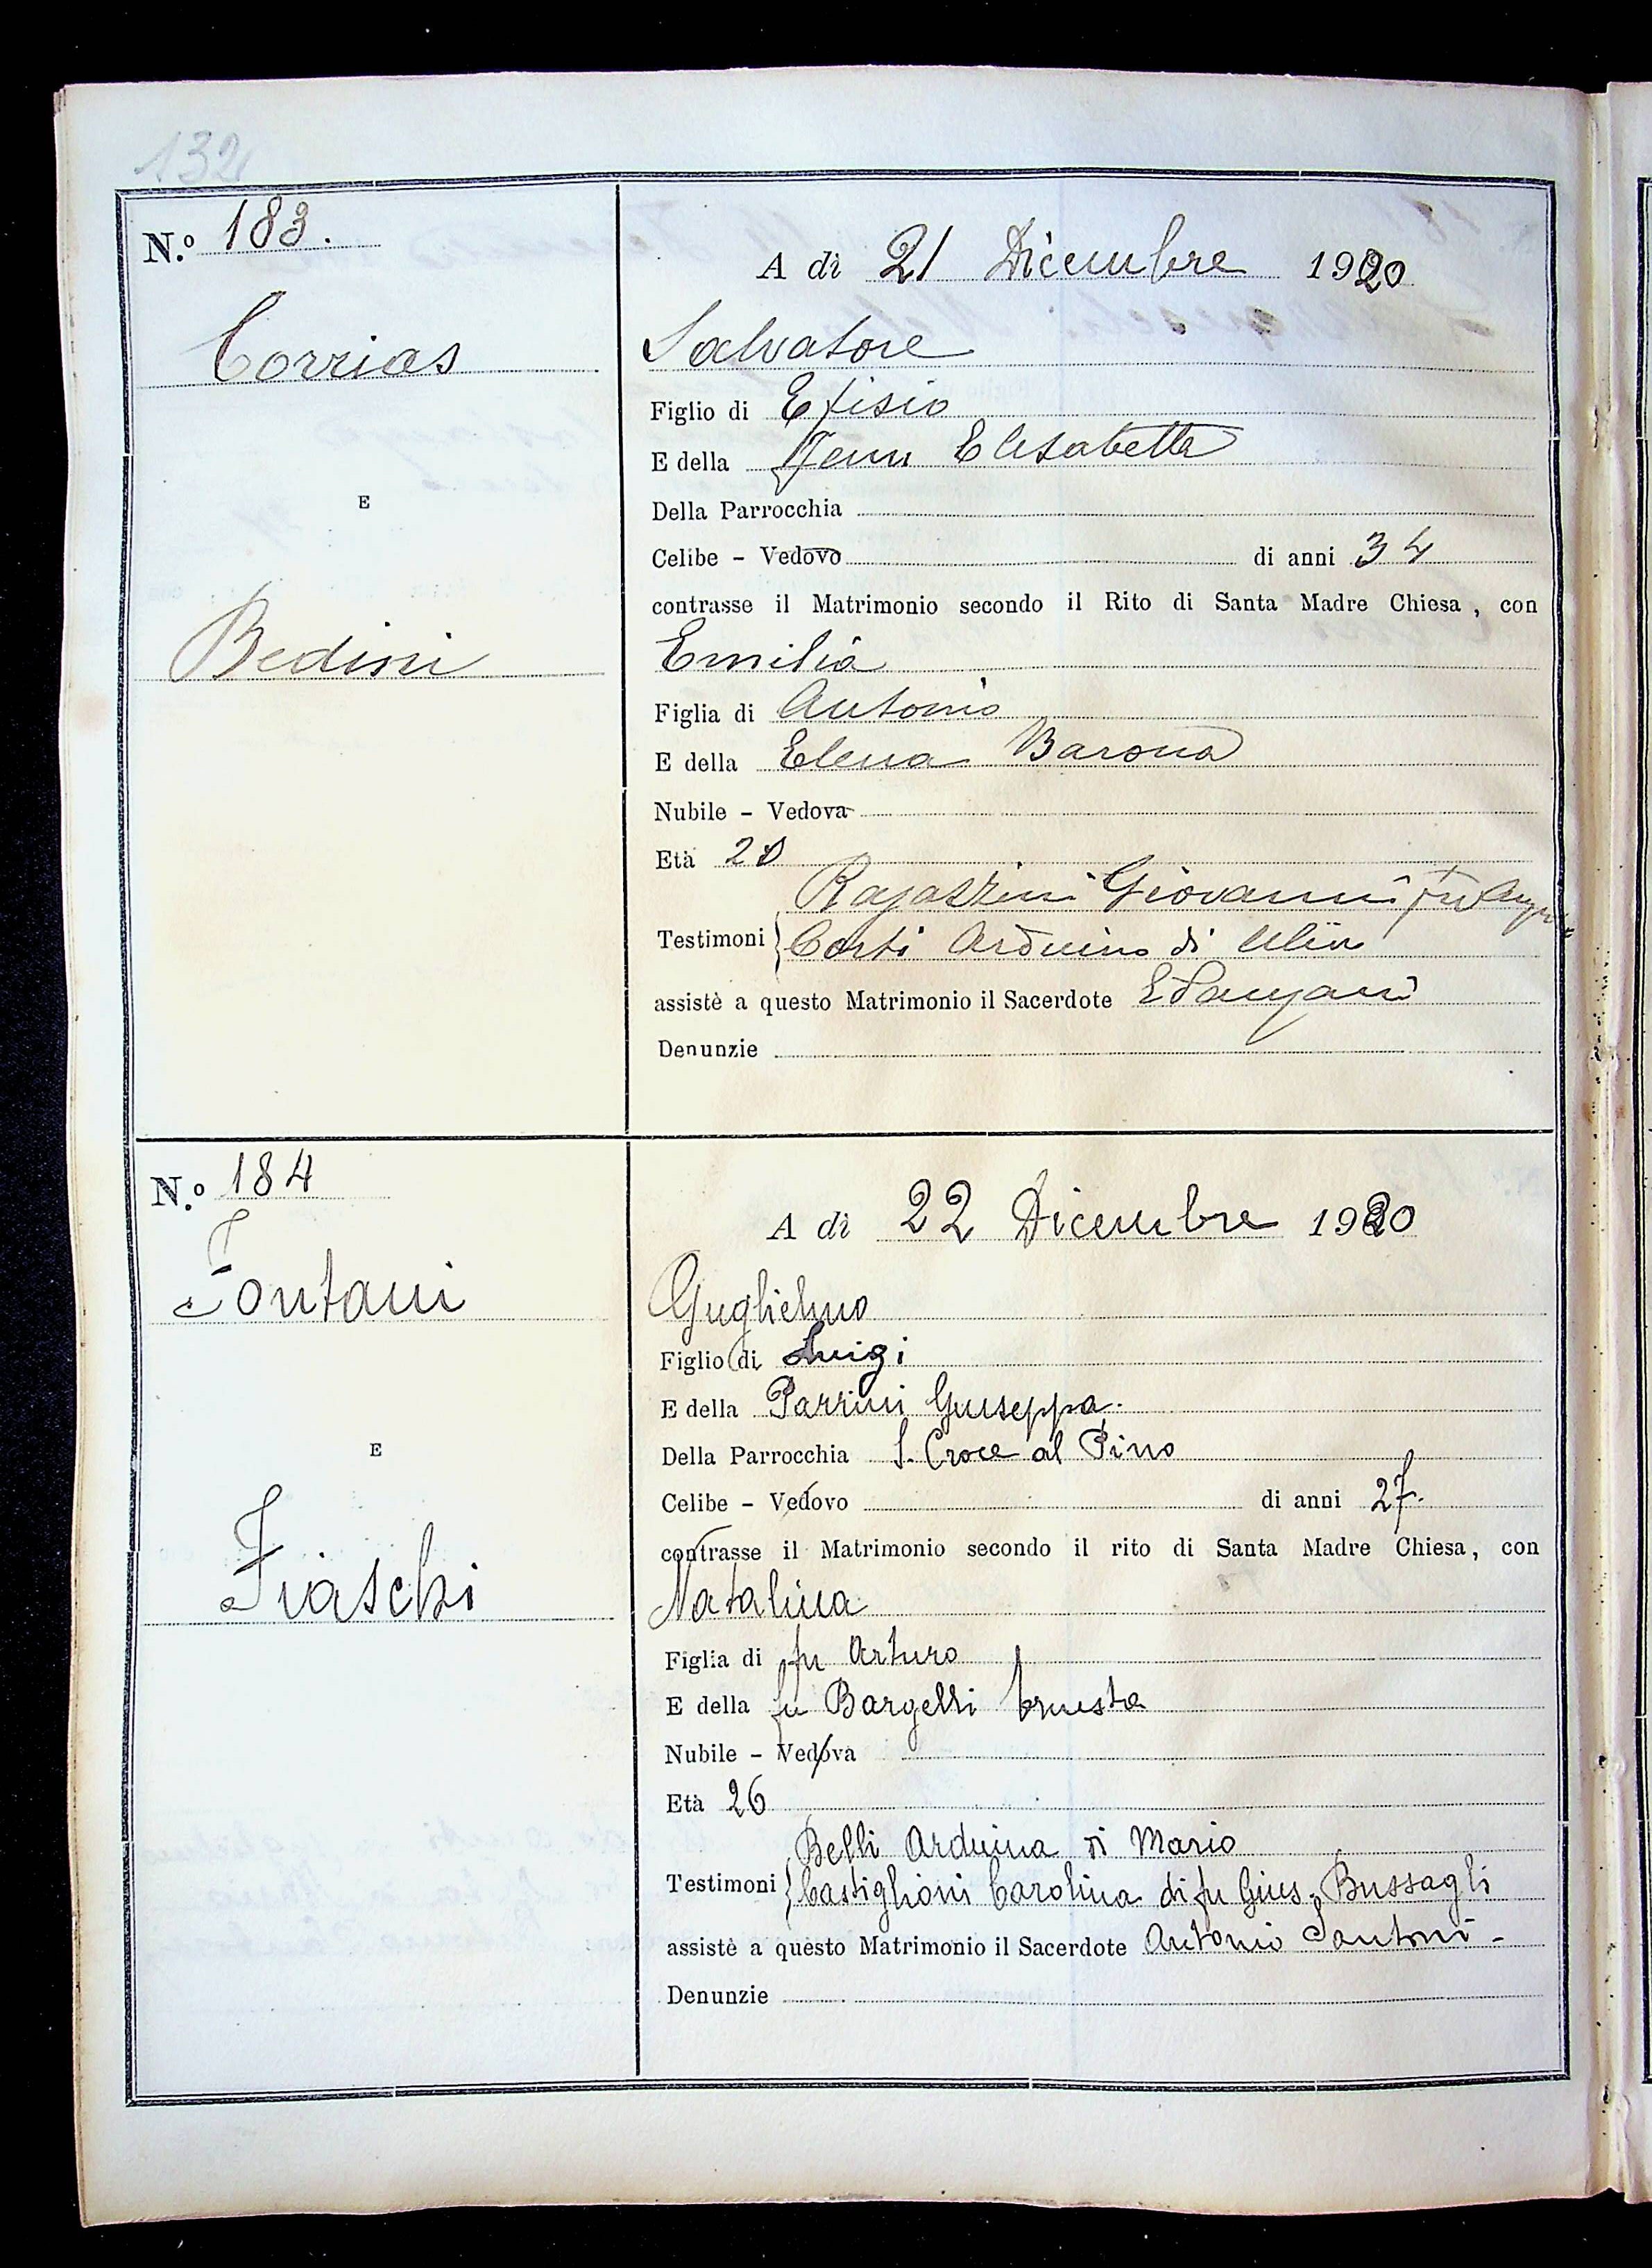 132
N.º 183.
Corrias
E
Bedini
A dì 21 Dicembre 1920
Salvatore
Figlio di Efisio
E della Elisabetta
Della Parrocchia
Celibe - Vedovo di anni 34
contrasse il Matrimonio secondo il Rito di Santa Madre Chiesa, con
Emilia
Figlia di Antonio
E della Elena Barona
Nubile - Vedova
Età
Ragazzini Giovanni fu
Testimoni Corti Arduino di
assistè a questo Matrimonio il Sacerdote
Denunzie
N.º 184
Fontani
E
Fiaschi
A dì 22 Dicembre 1920
Guglielmo
Figlio di Luigi
E della Parrini Giuseppa.
Della Parrocchia S. Croce al Pino
Celibe - Vedovo di anni 27.
contrasse il Matrimonio secondo il rito di Santa Madre Chiesa, con
Natalina
Figlia di fu Arturo
E della fu Bargelli Ernesta
Nubile - Vedova
Età 26
Belli Arduina di Mario
Testimoni Castiglioni Carolina di fu Gius. Bussagli
assistè a questo Matrimonio il Sacerdote Antonio Santoni -
Denunzie